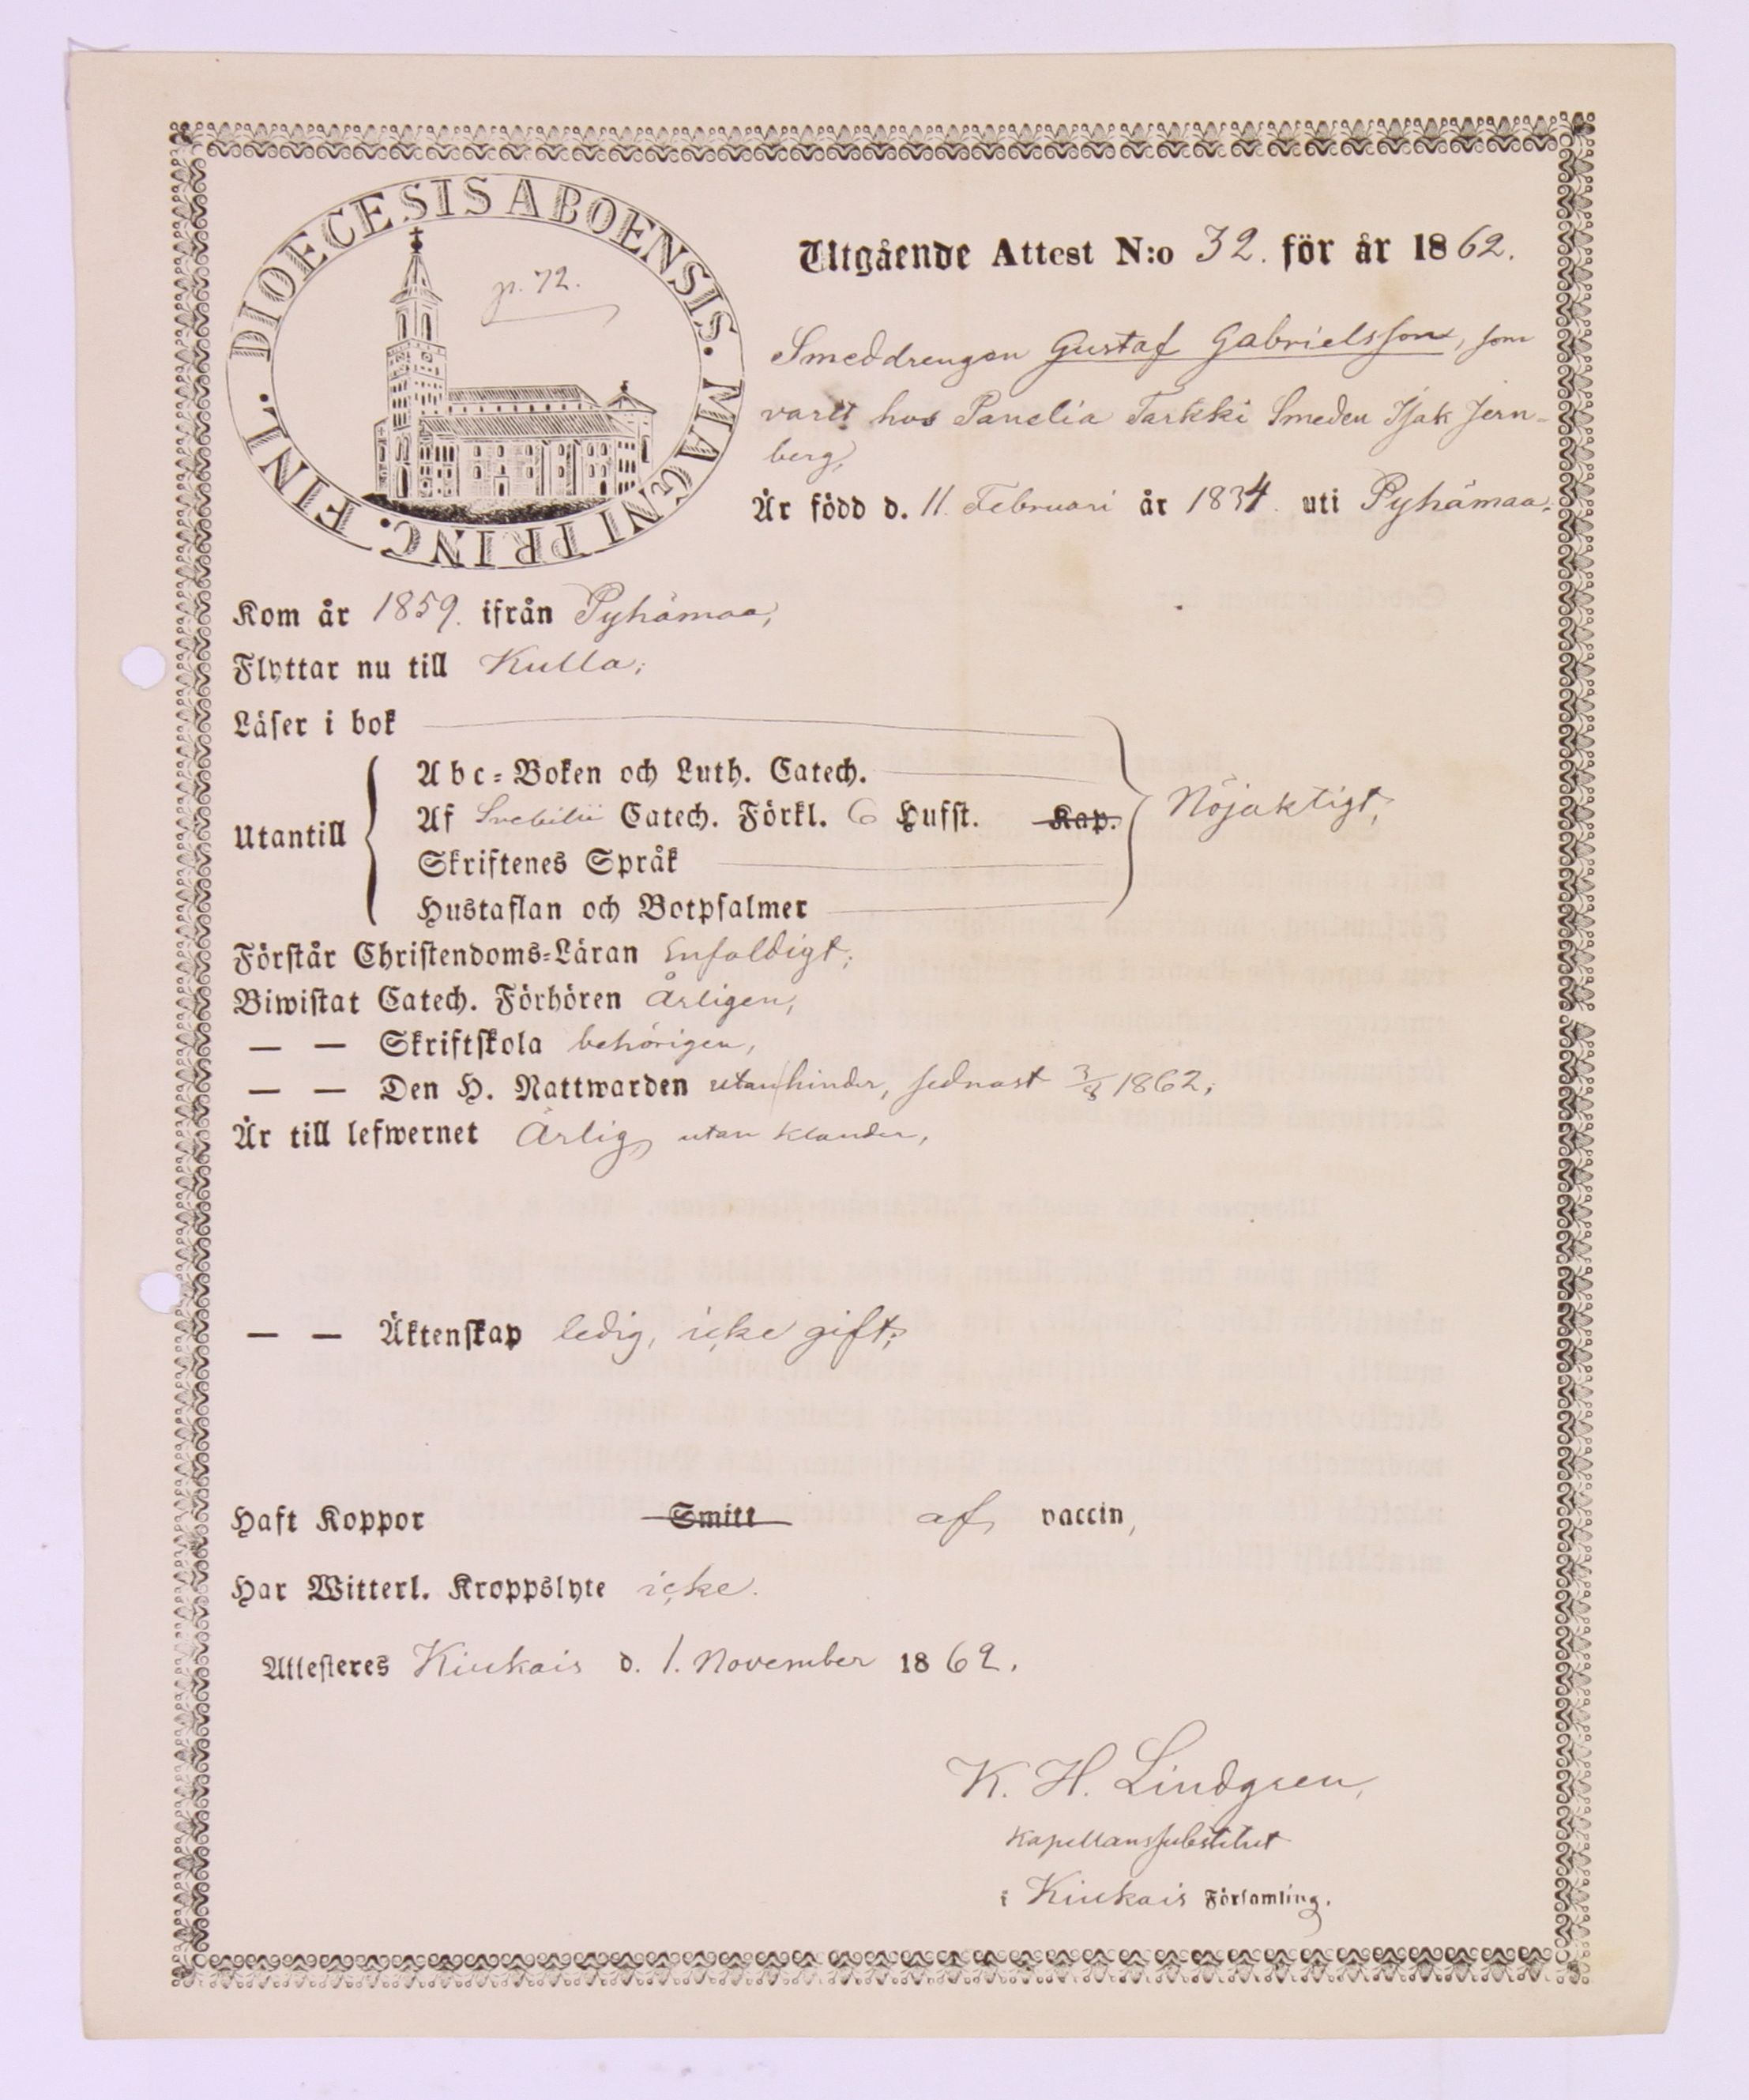 DIOECESIS ABOENSIS. MAGNI PRINC. FINL.
p. 72.
Utgående Attest N:o 32. för år 1862.
Smeddrengen Gustaf Gabrielsson, som
varit hos Panelia Tarkki Smeden Isak Jern-
berg,
Är född d. 11. Februari år 1834. uti Pyhämaa;
Kom år 1859. ifrån Pyhämaa;
Flyttar nu till Kulla;
Läser i bok
Abc-Boken och Luth. Catech.
Utantill Af Svebilii Catech. Förkl. 6 Hufst. Kap. Nöjaktigt,
Skriftenes Språk
Hustaflan och Botpsalmer
Förstår Christendoms-Läran Enfaldigt;
Biwistat Catech. Förhören Årligen,
— — Skriftskola behörigen,
— — Den H. Nattwarden utan hinder, sednast 3/8 1862;
Är till lefwernet Ärlig, utan klander,
— — Äktenskap ledig, icke gift;
Haft Koppor Smitt af vaccin,
Har Witterl. Kroppslyte icke.
Attesteres Kiukais d. 1. November 1862.
K. H. Lindgren,
Kapellanssubstitut
i Kiukais Församling.